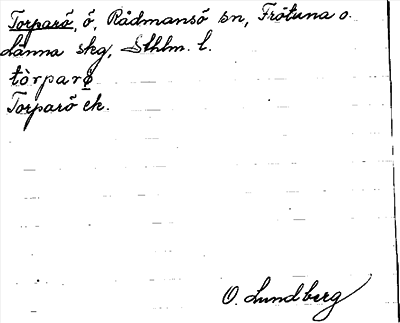 Torparö, ö, Rådmansö sn, Frötuna o.
Länna skg, Sthlm. l.
tòrparø
Torparö ek.
O. Lundberg